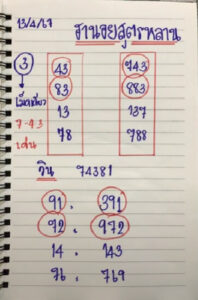 13/4/67
งานจยสูตรหลาน
3 43 743
83 883
เม็ดเดียว 13 137
7-43 78 788
เด่น
วิน 74381
91. 391
92. 972
14. 143
76. 769